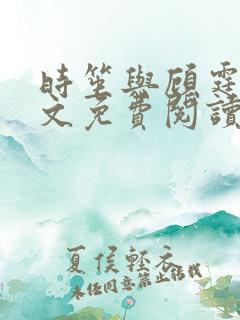 時笙與顧霆
文免費閱讀
夏侯輕衣
未經同意禁止轉載